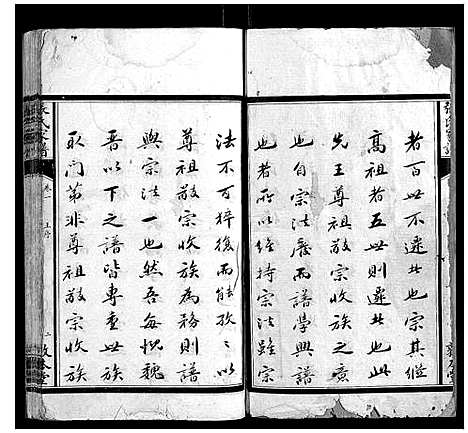 者百世不遷者也宗其繼
高祖者五世則遷者也此
先王尊祖敬宗收族之意
也自宗法廢而譜學興譜
也者所以維持宗法雖宗
法不可猝復而能孜孜以
尊祖敬宗收族為務則譜
與宗法一也然吾每慨魏
晉以下之譜皆專查世族
取門第非尊祖敬宗收族
氏家譜
卷一
序
二
敬
堂